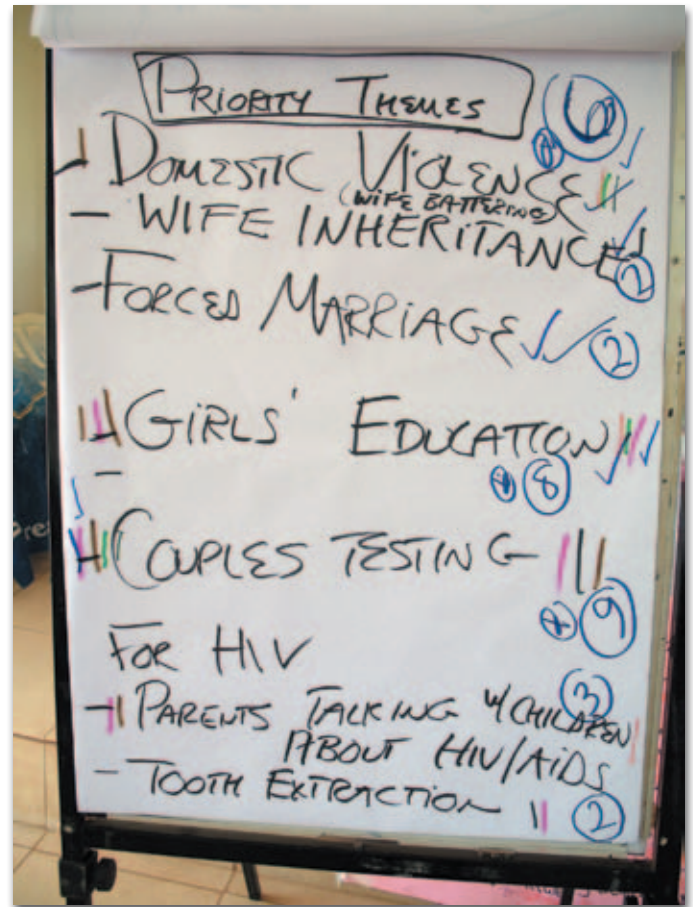 PRIORITY THEMES
6
DOMESTIC VIOLENCE
(WIFE BATTERING)
- WIFE INHERITANCE
2
- FORCED MARRIAGE 2
- GIRLS' EDUCATION
8
-
- COUPLES TESTING
9
FOR HIV
3
- PARENTS TALKING W/CHILDREN
ABOUT HIV/AIDS
- TOOTH EXTRACTION 2